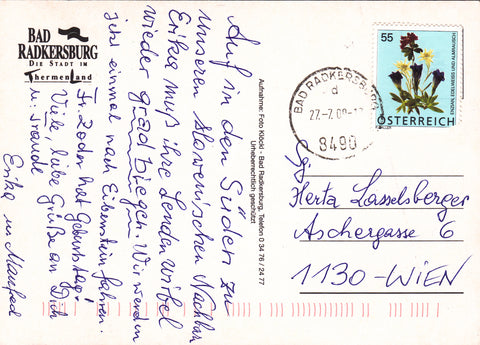 BAD
RADKERSBURG
DIE STADT IM
ThermenLand
Auf in den Süden zu
unseren slowenischen Nachbarn
Erika muß ihre Lendenwirbel
wieder gradbiegen. Wir werden
jetzt einmal nach Eibenstein fahren.
Fr. Zoder hat Geburtstag!
Viele, liebe Grüße an Dich
u. Traude
Erika u Manfred
Aufnahme: Foto Klöckl - Bad Radkersburg, Telefon 0 34 76 / 24 77
Urheberrechtlich geschützt
BAD RADKERSBURG
d
27.-7.09-1
8490
55
ENZIAN, EDELWEISS UND ALMRAUSCH
ÖSTERREICH
Herta Lasselsberger
Aschergasse 6
1130-WIEN